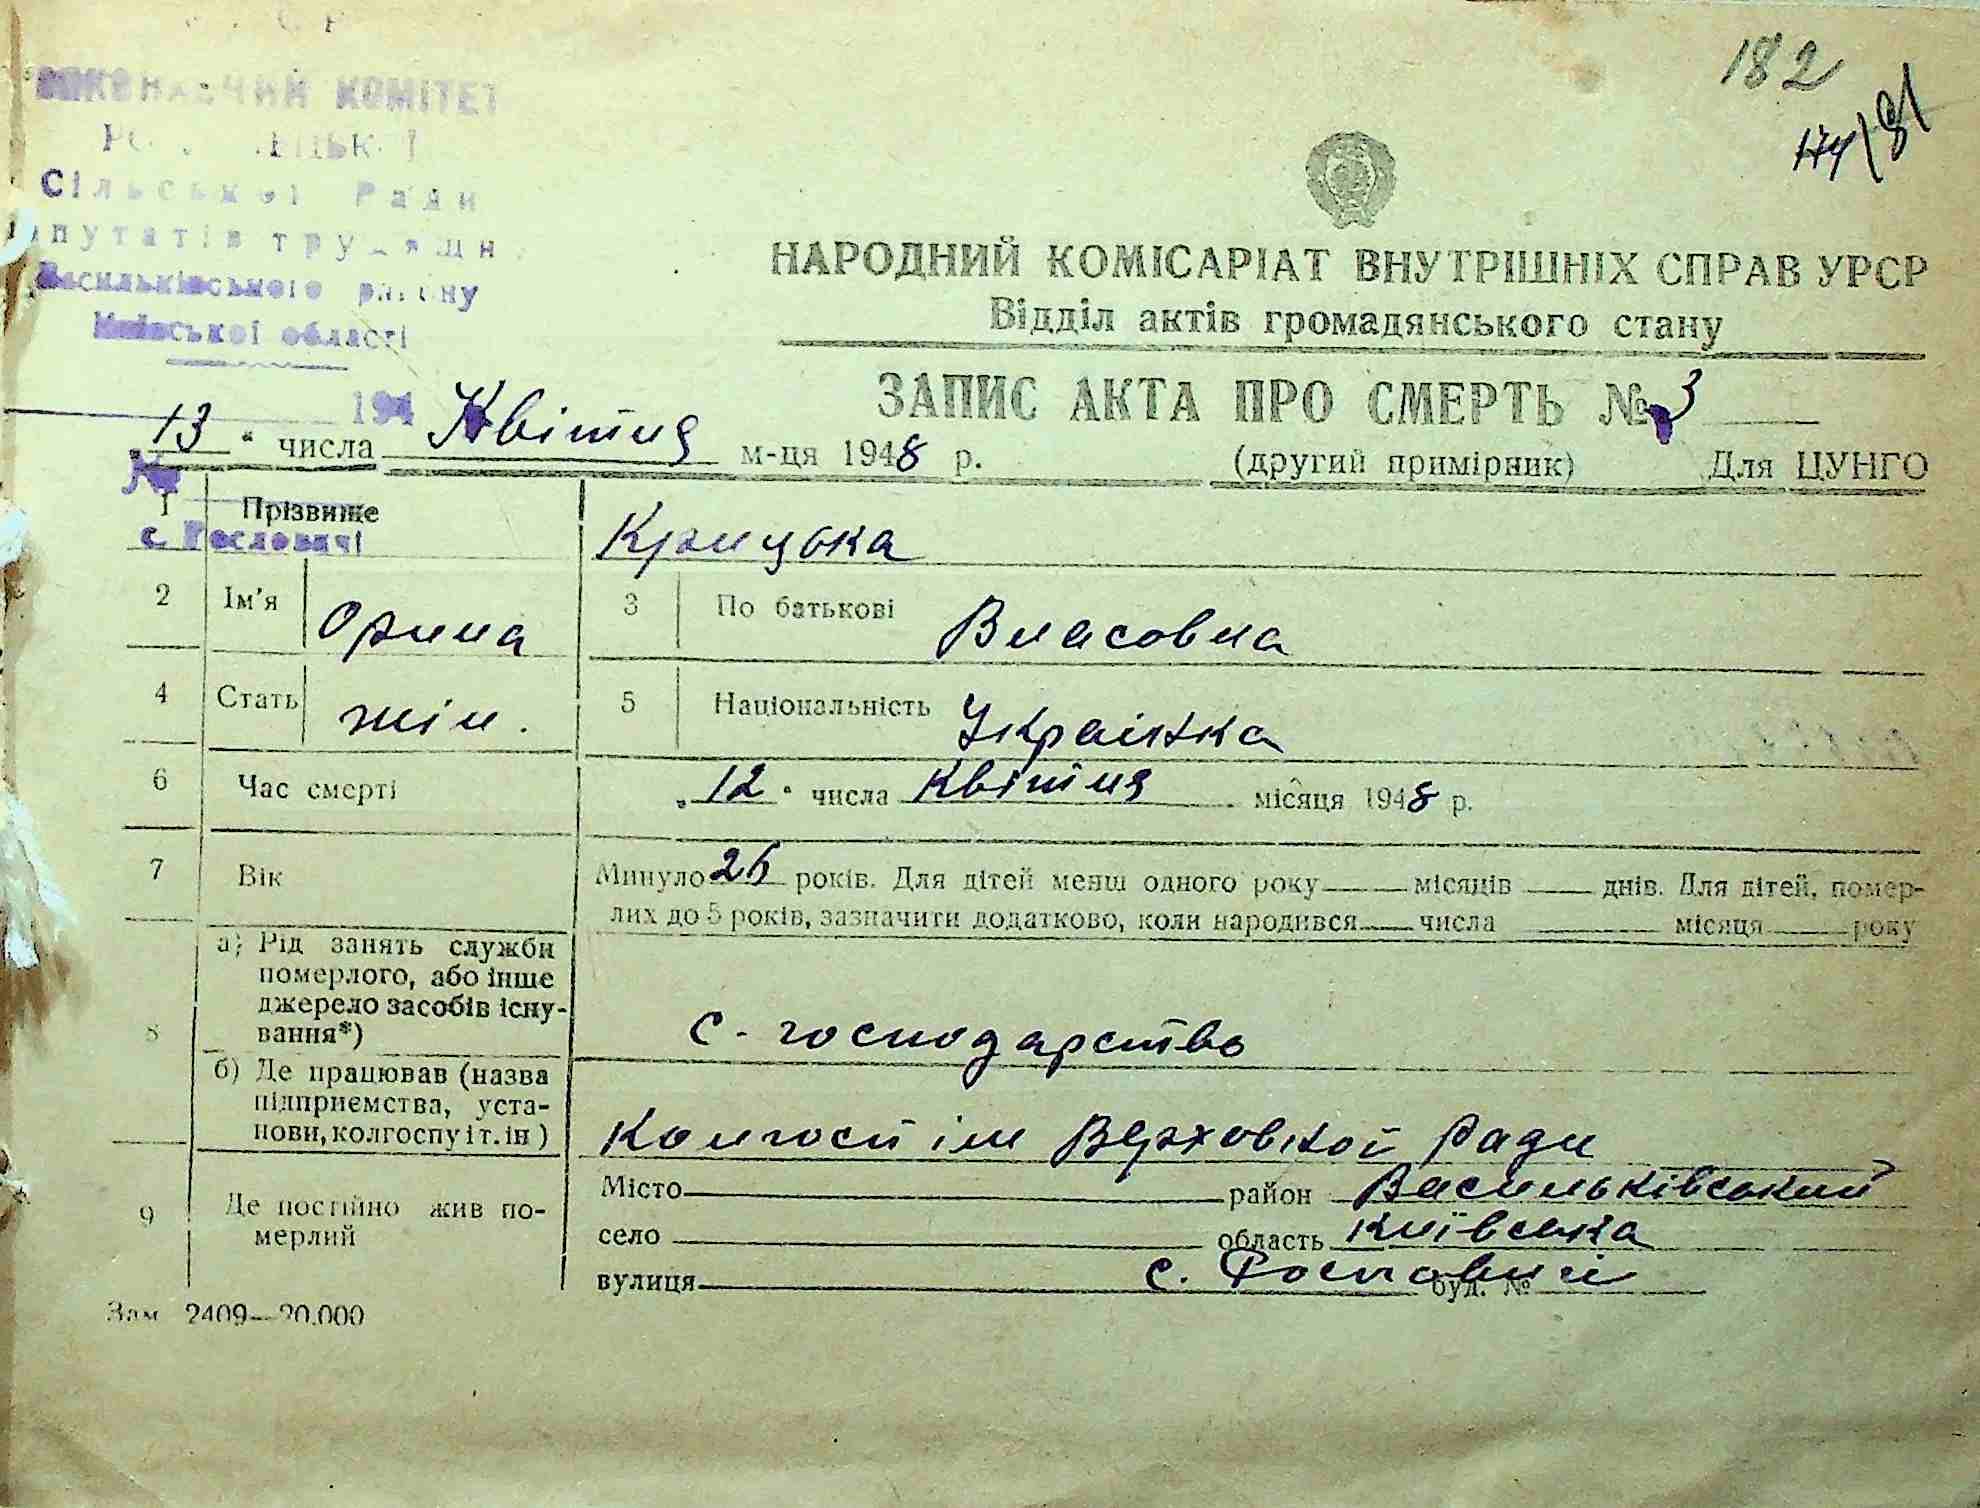 182
174/81
ВИКОНАВЧИЙ КОМІТЕТ
Сільської Ради
путатів трудящи
Васильківського району
Київської області
194
№
с. Рословичі
НАРОДНИЙ КОМІСАРІАТ ВНУТРІШНІХ СПРАВ УРСР
Відділ актів громадянського стану
ЗАПИС АКТА ПРО СМЕРТЬ № 3
13 " числа Квітня м-ця 1948 р. (другий примірник) Для ЦУНГО
1 Прізвище Крицька
2 Ім'я Орина 3 По батькові Власовна
4 Стать жін. 5 Національність Українка
6 Час смерті „12" числа Квітня місяця 1948 р.
7 Вік Минуло 26 років. Для дітей менш одного року місяців днів. Для дітей, помер-
лих до 5 років, зазначити додатково, коли народився числа місяця року
8 а) Рід занять служби
померлого, або інше
джерело засобів існу-
вання*) С-господарство
б) Де працював (назва
підприємства, уста-
нови, колгоспу і т. ін) Колгосп ім Верховної Ради
9 Де постійно жив по-
мерлий
Місто район Васильківський
село область Київська
вулиця с. Рословичі буд. №
Зам 2409—20.000